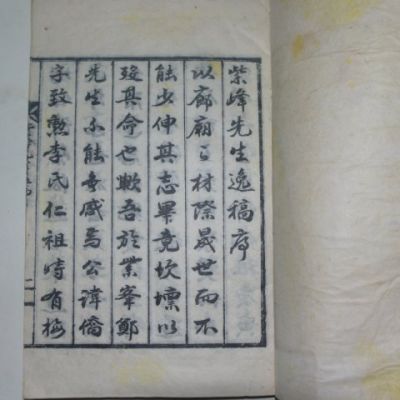 紫峰先生逸稿序
以廊廟之材際晟世而不
能少伸其志畢竟坎壈以
終其命也歟吾於紫峯鄭
先生不能無感焉公諱僑
字致勲李氏仁祖時有梅